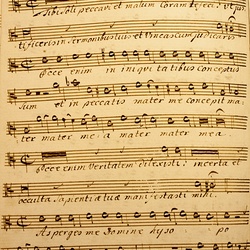 Tibi soli peccavi et malum coram te feci: ut ju
tificeris in Sermonibus tuis et vincas cum judicaris
Ecce enim in iniqui tatibus conceptus
Sum et in peccatis mater me concepit ma
ter mater me a mater mea.
Ecce enim veritatem dilexisti: incerta et
occulta Sapientiæ tuæ manifestasti mihi.
Asperges me Domine hyso po